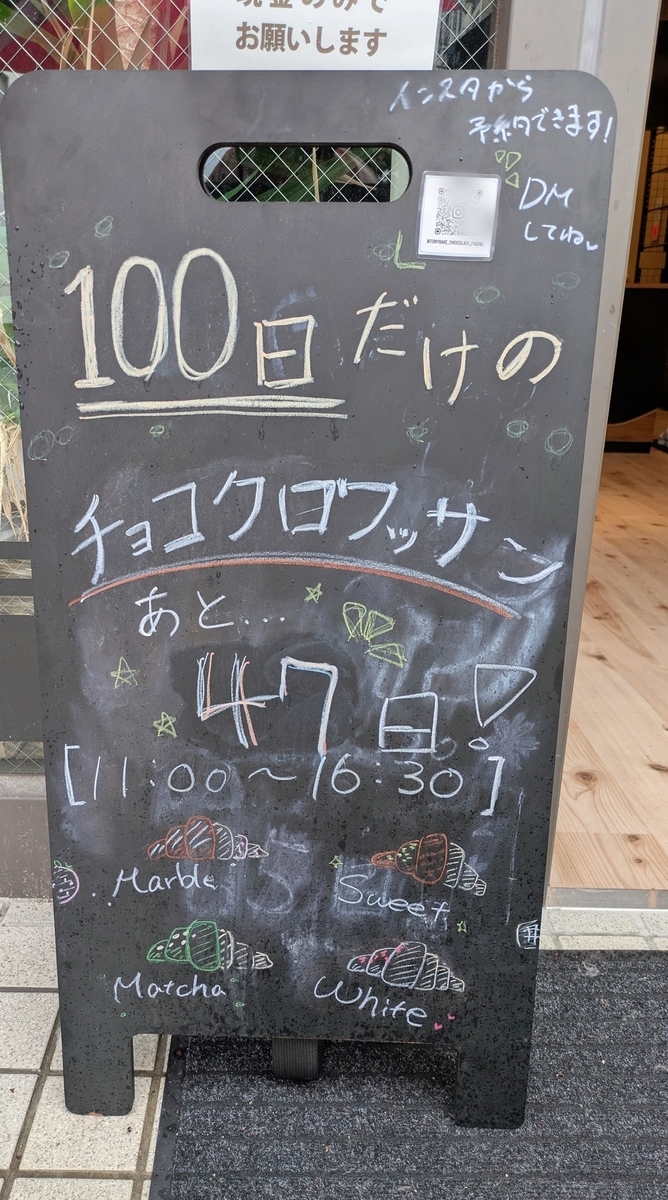 現金のみで
お願いします
インスタから
予約できます!
DM
してね
100日だけの
チョコクロワッサン
あと...
47日!
[11:00~16:30]
Marble
Sweet
Matcha
White